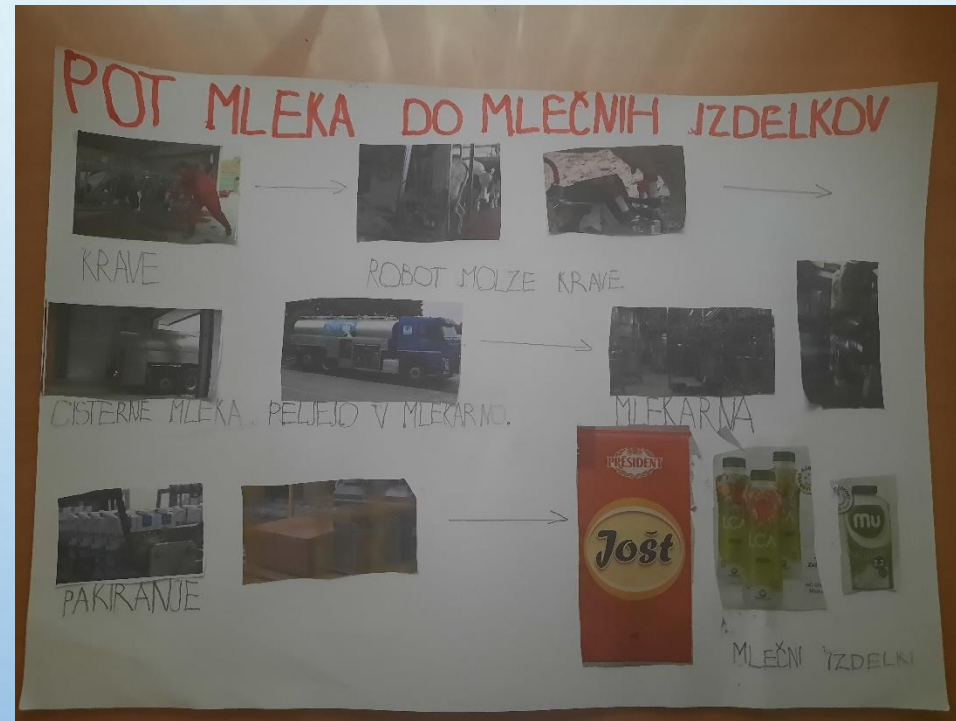 POT MLEKA DO MLEČNIH IZDELKOV
KRAVE
ROBOT MOLZE KRAVE
CISTERNE MLEKA PELJEJO V MLEKARNO.
MLEKARNA
PAKIRANJE
PRÉSIDENT
Jošt
LCA
LCA
mu
MLEČNI IZDELKI